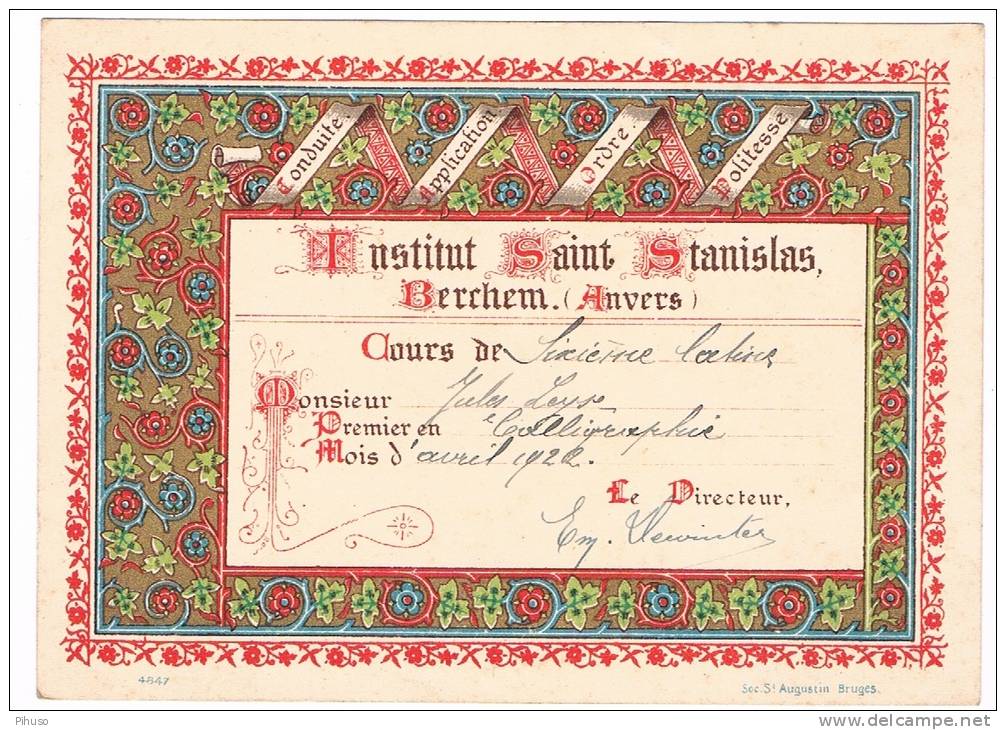 Conduite.
Application.
Ordre.
Politesse.
Institut Saint Stanislas,
Berchem. (Anvers)
Cours de Sixième latine
Monsieur Jules Leys
Premier en Calligraphie
Mois d'avril 1922.
Le Directeur,
Em. Dewinter
4847
Soc. St Augustin Bruges.
Pihuso
www.delcampe.net